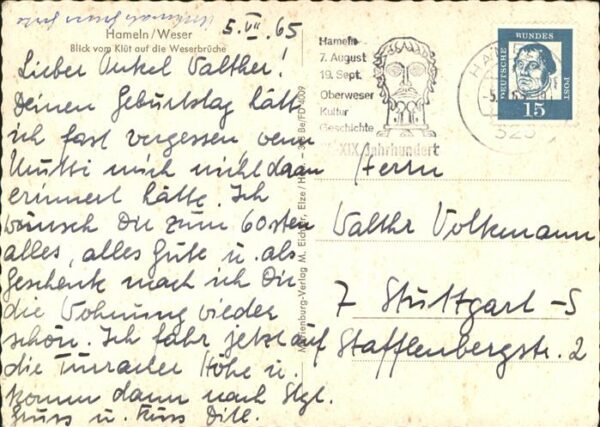 5.VII 65
Hameln/Weser
Blick vom Klüt auf die Weserbrücke
Lieber Onkel Walther!
Deinen Geburtstag hätt
ich fast vergessen, wenn
Mutti mich nicht daran
erinnert hätte. Ich
wünsch Dir zum 60sten
alles, alles Gute u. als
Geschenk mach ich Dir
die Wohnung wieder
schön. Ich fahr jetzt auf
die Höhe u.
komm dann nach Stgt.
Gruss u. Kuss
Marienburg-Verlag M. Eichler, Elze/Han. Be/FD 4009
Hameln
7. August
19. Sept.
Oberweser
Kultur
Geschichte
XIX. Jahrhundert
DEUTSCHE BUNDES POST
15
Herrn
Walthr Volkmann
7 Stuttgart-S
Stafflenbergstr. 2